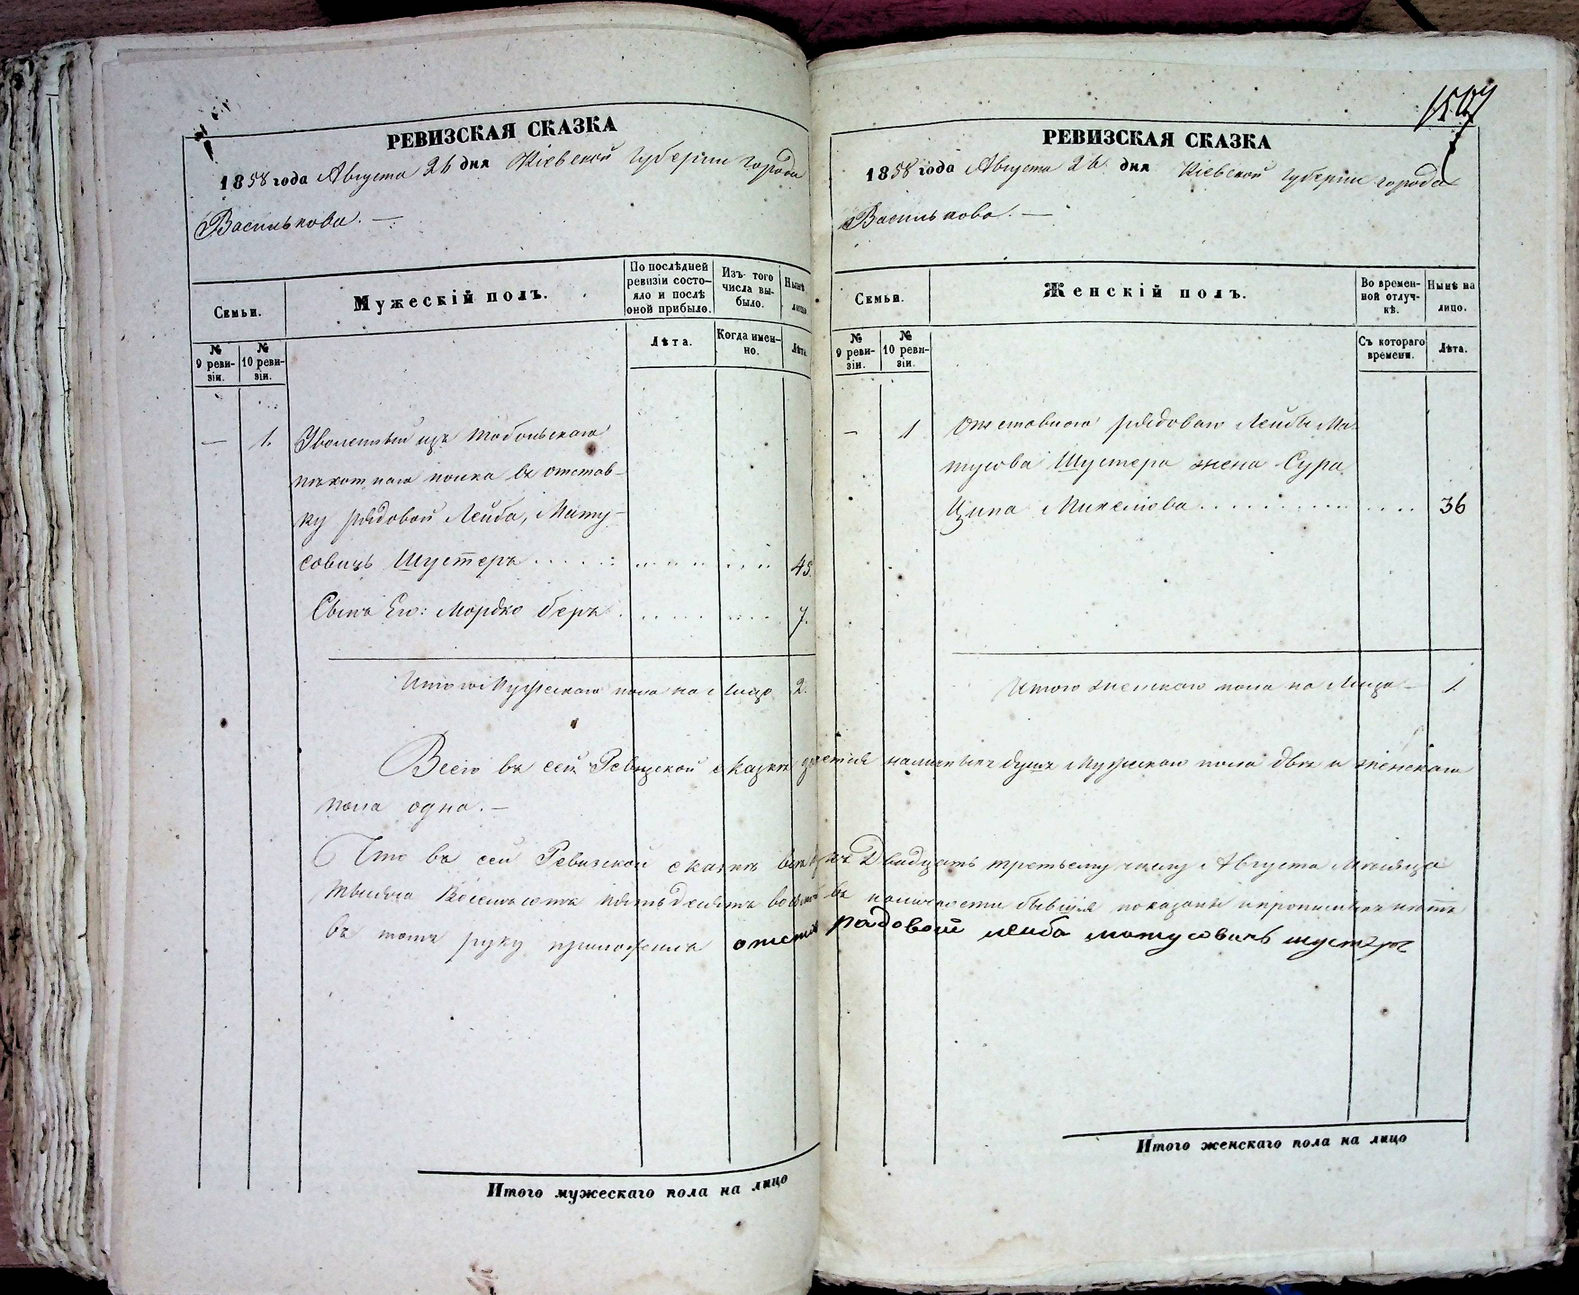 РЕВИЗСКАЯ СКАЗКА
1858 года Августа 26 дня Кіевской Губерніи города
Василькова. —
Семьи.
Мужескій полъ.
По послѣдней ревизіи состояло и послѣ оной прибыло.
Изъ того числа выбыло.
Нынѣ
лицо
№ 9 ревизіи.
№ 10 ревизіи.
Лѣта.
Когда именно.
Лѣта
— 1. Уволенный изъ Тобольскаго
пѣхотнаго полка въ отстав-
ку рядовой Лейба, Мату-
совичъ Шустеръ 45.
Сынъ Его: Мордко Беръ 7.
Итого Мужескаго пола на Лицо 2.
РЕВИЗСКАЯ СКАЗКА
1858 года Августа 26 дня Кіевской Губерніи города
Василькова. —
Семьи.
Женскій полъ.
Во временной отлучкѣ.
Нынѣ на лицо.
№ 9 ревизіи.
№ 10 ревизіи.
Съ котораго времени.
Лѣта.
— 1 Отставнаго рядоваго Лейбы Ма-
тусова Шустера жена Сура
Ципа 36
Итого женскаго пола на Лицо — 1.
Всего въ сей Ревизской сказкѣ наличныхъ душъ Мужескаго пола двѣ и женскаго
пола одна. —
Что въ сей Ревизской сказкѣ всѣ къ Двадцать третьему числу Августа Мѣсяца
тысяча Восемьсотъ пятьдесятъ въ наличности бывшія показаны и прописныхъ нѣтъ
въ томъ руку приложилъ рядовой лейба матусовичъ шустеръ
Итого мужескаго пола на лицо
Итого женскаго пола на лицо